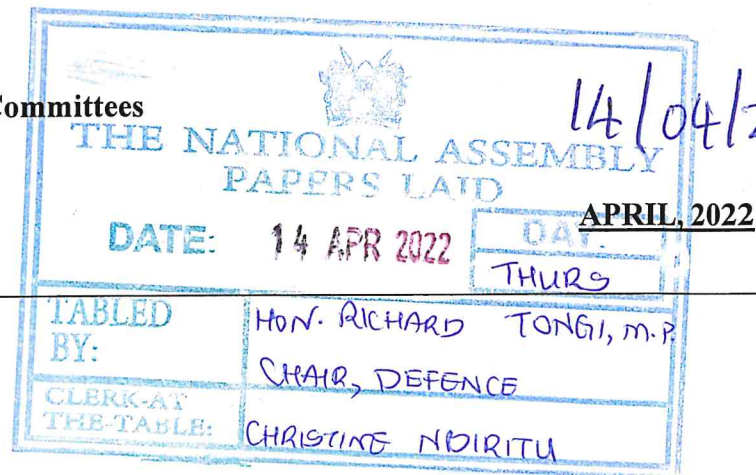 Committees
14/04/2
THE NATIONAL ASSEMBLY
PAPERS LAID
APRIL, 2022
DATE: 14 APR 2022 DAY.
THURS
TABLED BY: HON. RICHARD TONGI, M.P.
CHAIR, DEFENCE
CLERK-AT THE-TABLE: CHRISTINE NDIRITU